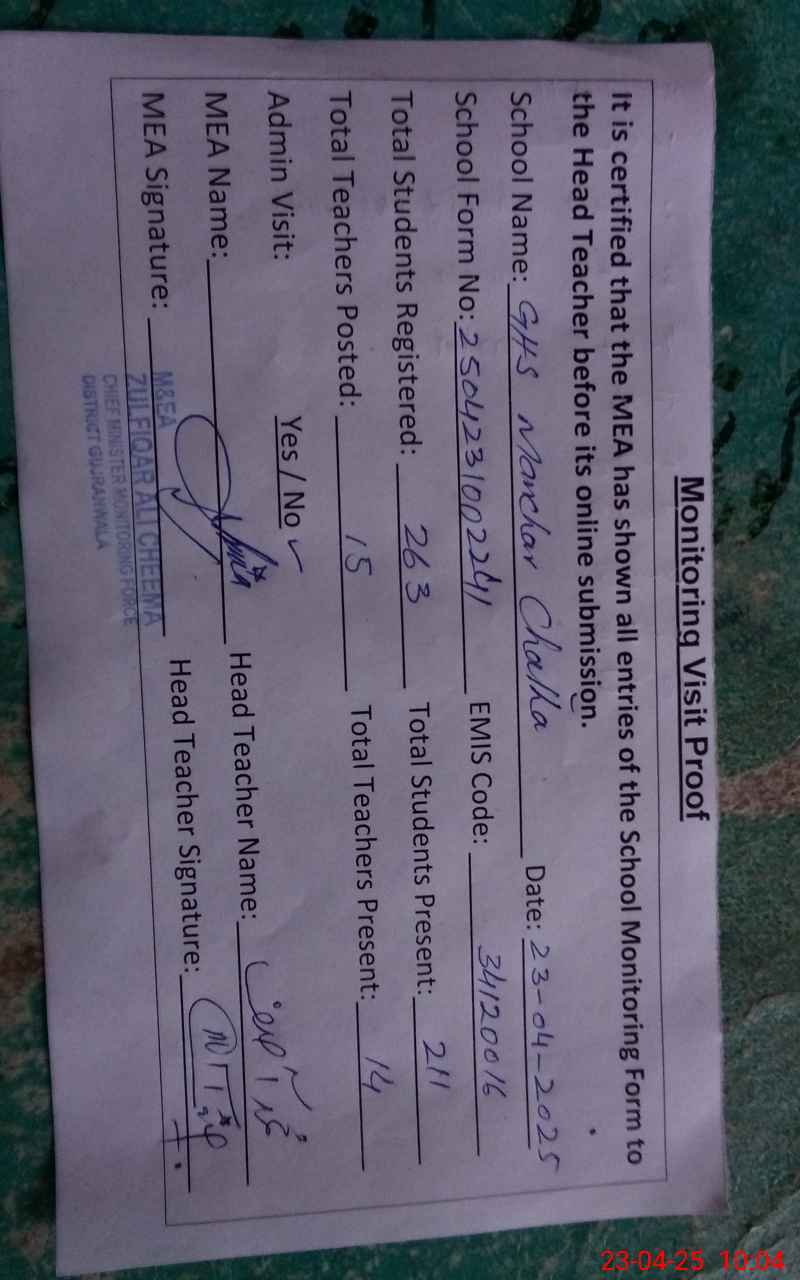 Monitoring Visit Proof
It is certified that the MEA has shown all entries of the School Monitoring Form to
the Head Teacher before its online submission.
School Name: GHS Manchar Chatha Date: 23-04-2025
School Form No: 2504231002241 EMIS Code: 34120016
Total Students Registered: 263 Total Students Present: 211
Total Teachers Posted: 15 Total Teachers Present: 14
Admin Visit: Yes / No ✓
MEA Name: Head Teacher Name:
MEA Signature: Head Teacher Signature:
M&EA
ZULFIQAR ALI CHEEMA
CHIEF MINISTER MONITORING FORCE
DISTRICT GUJRANWALA
23-04-25 10:04